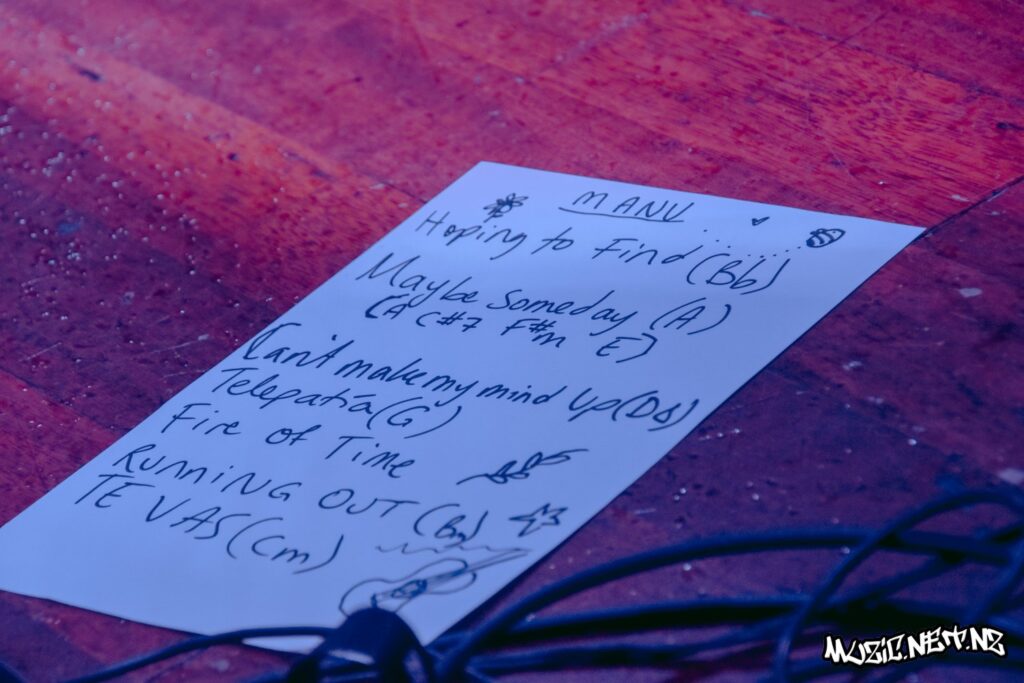 MANU
Hoping to Find... (Bb)
Maybe Someday (A)
(A C#7 F#m E)
Can't make my mind up (Db)
Telepatía (G)
Fire of Time
RUNNING OUT (Bm)
TE VAS (Cm)
MUZIC.NET.NZ